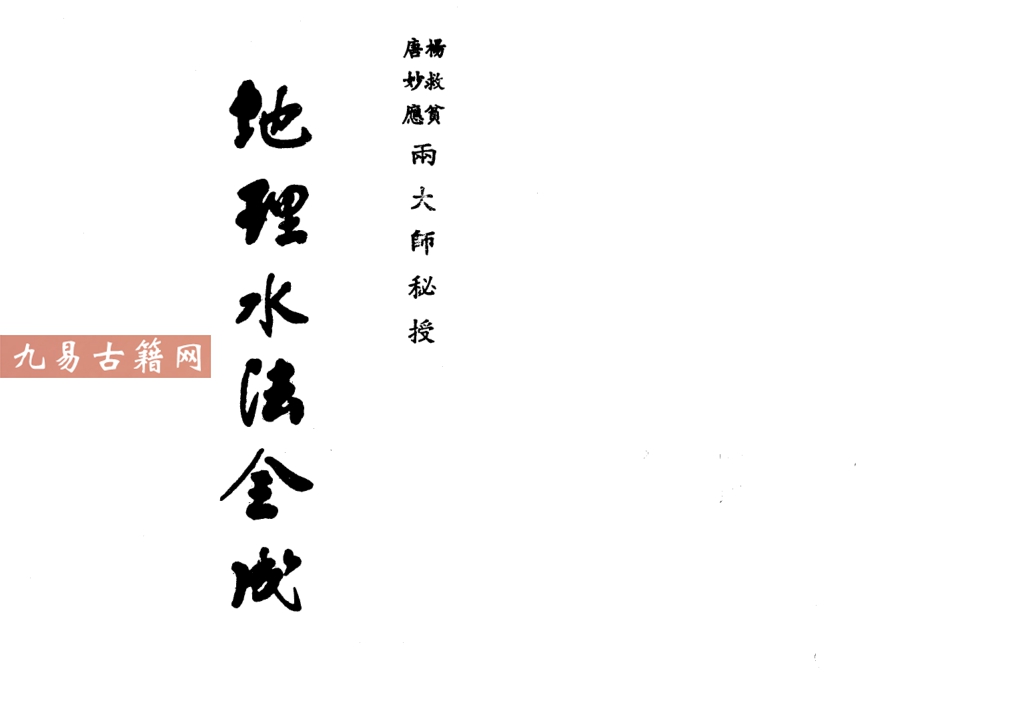 楊救貧
唐妙應
兩大師秘授
地理水法全成
九易古籍网